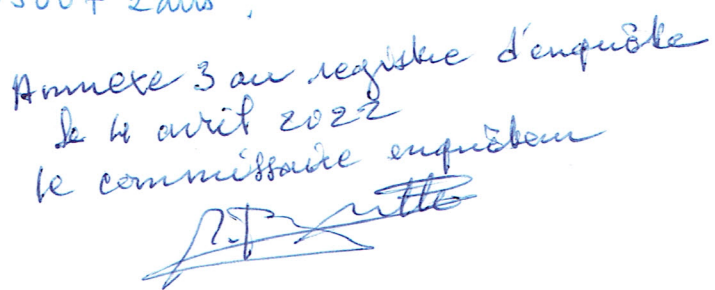 Annexe 3 au registre d'enquête
le 4 avril 2022
le commissaire enquêteur